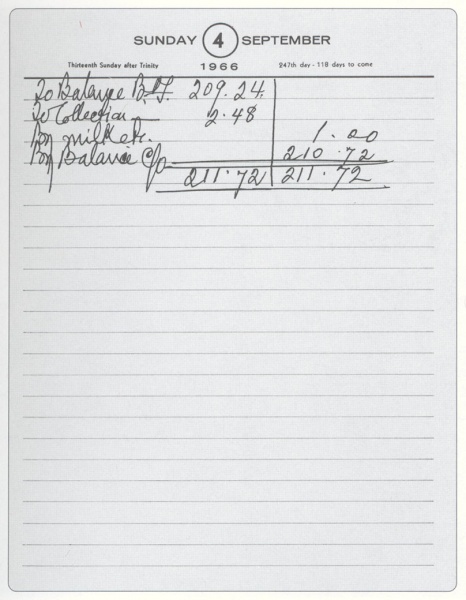 SUNDAY 4 SEPTEMBER
Thirteenth Sunday after Trinity 1966 247th day - 118 days to come
To Balance B.F. 209.24
To Collection 2.48
By milk etc. 1.00
By Balance C/o 210.72
211.72 211.72